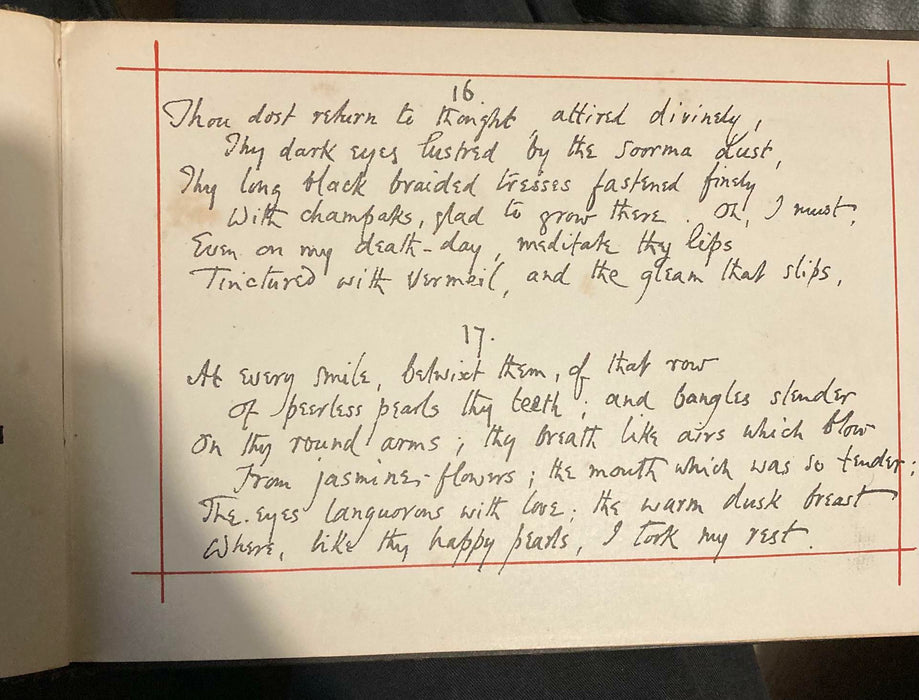 16
Thou dost return to thought, attired divinely,
Thy dark eyes lustred by the Soorma dust,
Thy long black braided tresses fastened finely
With champaks, glad to grow there. Oh, I must,
Even on my death-day, meditate thy lips
Tinctured with Vermeil, and the gleam that slips,
17.
At every smile, betwixt them, of that row
Of peerless pearls thy teeth; and bangles slender
On thy round arms; thy breath like airs which blow
From jasmine-flowers; the mouth which was so tender;
The eyes languorous with love; the warm dusk breast
Where, like thy happy pearls, I took my rest.